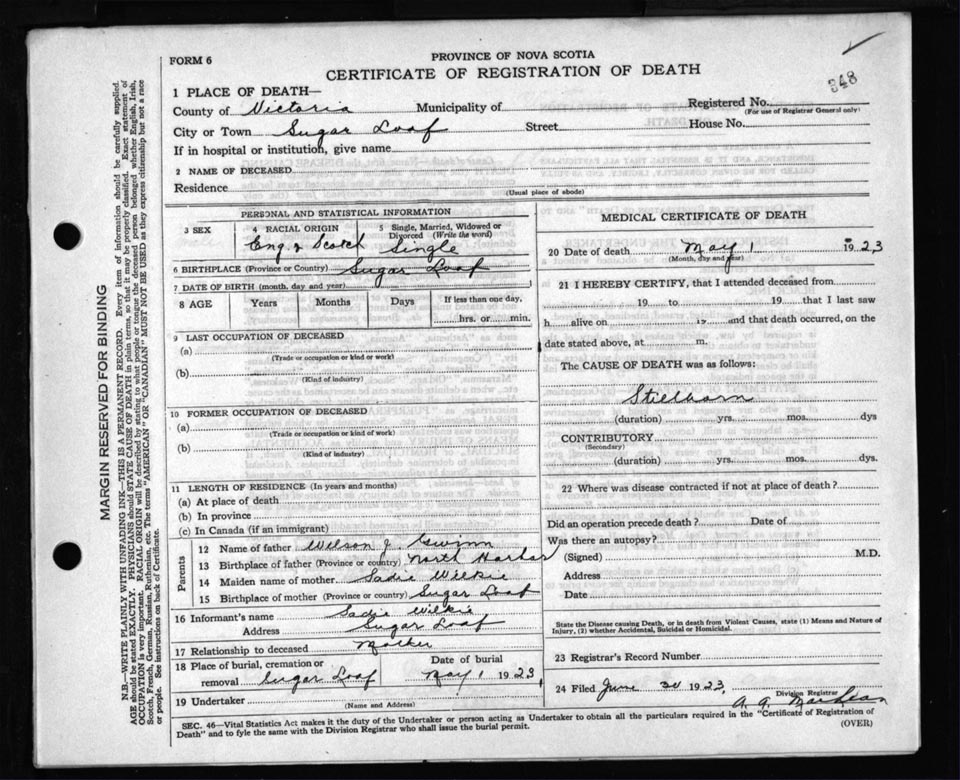 348
FORM 6
PROVINCE OF NOVA SCOTIA
CERTIFICATE OF REGISTRATION OF DEATH
1 PLACE OF DEATH—
County of Victoria Municipality of Registered No.
(For use of Registrar General only)
City or Town Sugar Loaf Street House No.
If in hospital or institution, give name
2 NAME OF DECEASED
Residence
(Usual place of abode)
PERSONAL AND STATISTICAL INFORMATION
3 SEX 4 RACIAL ORIGIN 5 Single, Married, Widowed or Divorced (Write the word)
Eng & Scotch Single
6 BIRTHPLACE (Province or Country) Sugar Loaf
7 DATE OF BIRTH (month, day and year)
8 AGE Years Months Days If less than one day,
hrs. or min.
9 LAST OCCUPATION OF DECEASED
(a)
(Trade or occupation or kind or work)
(b)
(Kind of industry)
10 FORMER OCCUPATION OF DECEASED
(a)
(Trade or occupation or kind of work)
(b)
(Kind of industry)
11 LENGTH OF RESIDENCE (In years and months)
(a) At place of death
(b) In province
(c) In Canada (if an immigrant)
Parents
12 Name of father Wilson J. Gwinn
13 Birthplace of father (Province or country) North Harbor
14 Maiden name of mother Sadie Wilkie
15 Birthplace of mother (Province or country) Sugar Loaf
16 Informant's name Sadie Wilkie
Address Sugar Loaf
17 Relationship to deceased Mother
18 Place of burial, cremation or Date of burial
removal Sugar Loaf May 1 1923
19 Undertaker
(Name and Address)
MEDICAL CERTIFICATE OF DEATH
20 Date of death May 1 1923
(Month, day and year)
21 I HEREBY CERTIFY, that I attended deceased from
19 to 19 that I last saw
h alive on 19 and that death occurred, on the
date stated above, at m.
The CAUSE OF DEATH was as follows:
Stillborn
(duration) yrs. mos. dys
CONTRIBUTORY
(Secondary)
(duration) yrs. mos. dys
22 Where was disease contracted if not at place of death?
Did an operation precede death? Date of
Was there an autopsy?
(Signed) M.D.
Address
Date
State the Disease causing Death, or in death from Violent Causes, state (1) Means and Nature of
Injury, (2) whether Accidental, Suicidal or Homicidal.
23 Registrar's Record Number
24 Filed June 30 1923
Division Registrar
SEC. 46—Vital Statistics Act makes it the duty of the Undertaker or person acting as Undertaker to obtain all the particulars required in the "Certificate of Registration of
Death" and to fyle the same with the Division Registrar who shall issue the burial permit. (OVER)
MARGIN RESERVED FOR BINDING
N.B.—WRITE PLAINLY WITH UNFADING INK—THIS IS A PERMANENT RECORD. Every item of information should be carefully supplied.
AGE should be stated EXACTLY. PHYSICIANS should STATE CAUSE OF DEATH in plain terms, so that it may be properly classified. Exact statement of
OCCUPATION is very important. RACIAL ORIGIN will be described by stating to what people or tongue the deceased person belonged whether English, Irish,
Scotch, French, German, Russian, Ruthenian, etc. The terms "AMERICAN" OR "CANADIAN" MUST NOT BE USED as they express citizenship but not a race
or people. See instructions on back of Certificate.